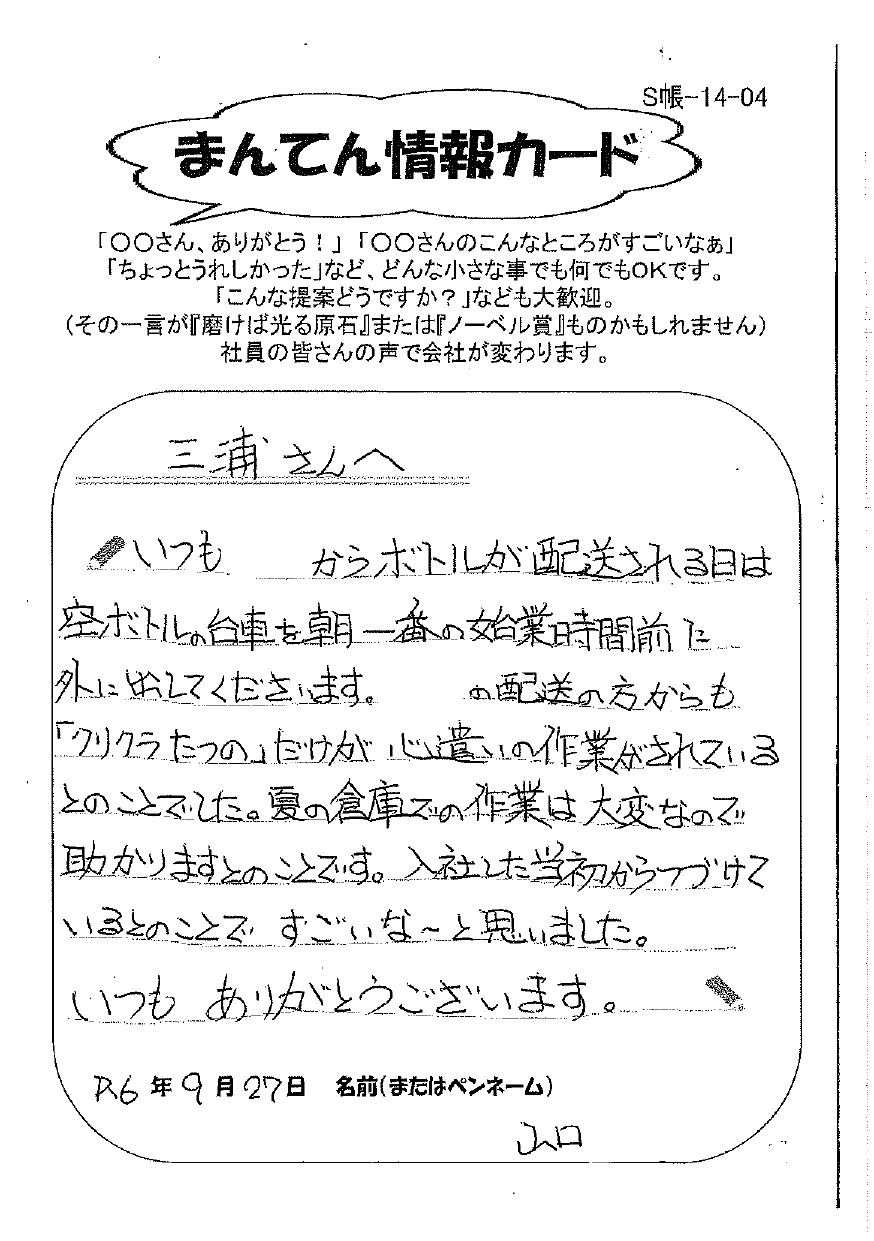 S帳-14-04
まんてん情報カード
「〇〇さん、ありがとう！」「〇〇さんのこんなところがすごいなぁ」
「ちょっとうれしかった」など、どんな小さな事でも何でもOKです。
「こんな提案どうですか？」なども大歓迎。
(その一言が『磨けば光る原石』または『ノーベル賞』ものかもしれません)
社員の皆さんの声で会社が変わります。
三浦さんへ
いつも からボトルが配送される日は
空ボトルの台車を朝一番の始業時間前に
外に出してくださいます。 の配送の方からも
「クリクラたつの」だけが心遣いの作業がされている
とのことでした。夏の倉庫での作業は大変なので
助かりますとのことです。入社した当初からつづけて
いるとのことで すごいな～と思いました。
いつも ありがとうございます。
R6年9月27日 名前(またはペンネーム)
山口